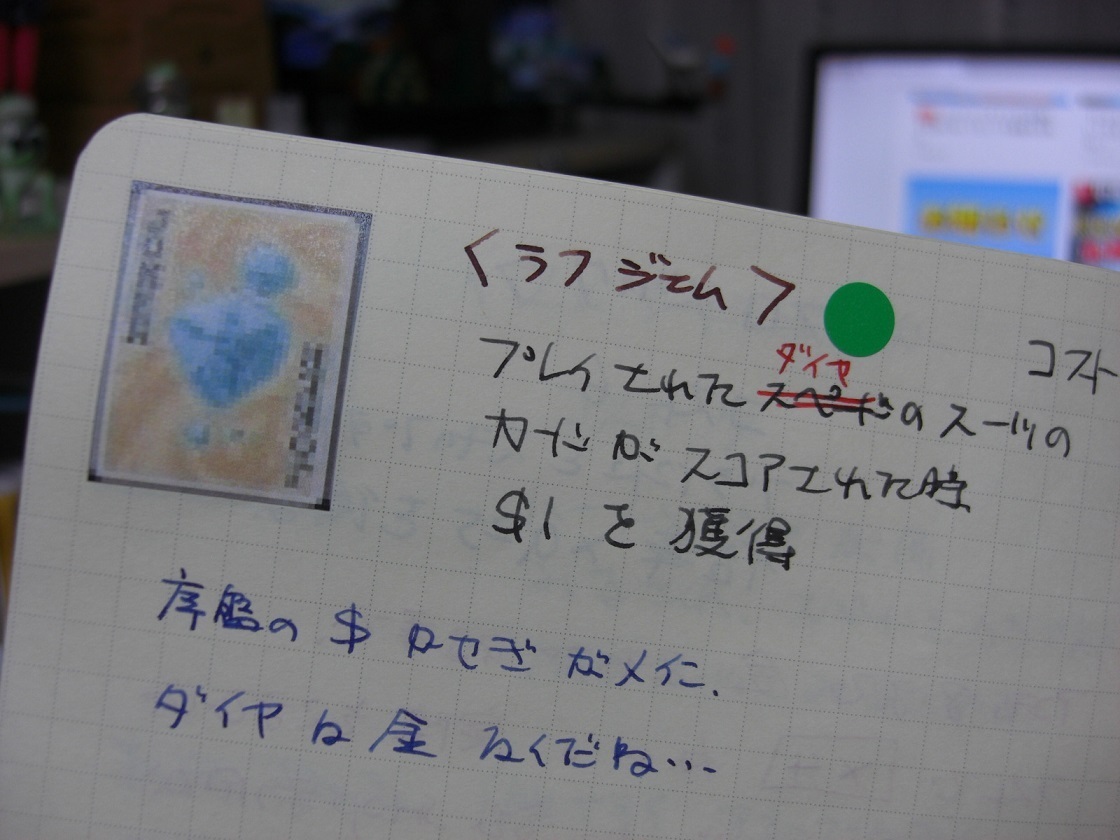 <ラフジェム>
コスト
ダイヤ
プレイされたスペードのスーツの
カードがスコアされた時
$1を獲得
序盤の$かせぎがメイン.
ダイヤは金なんだね…